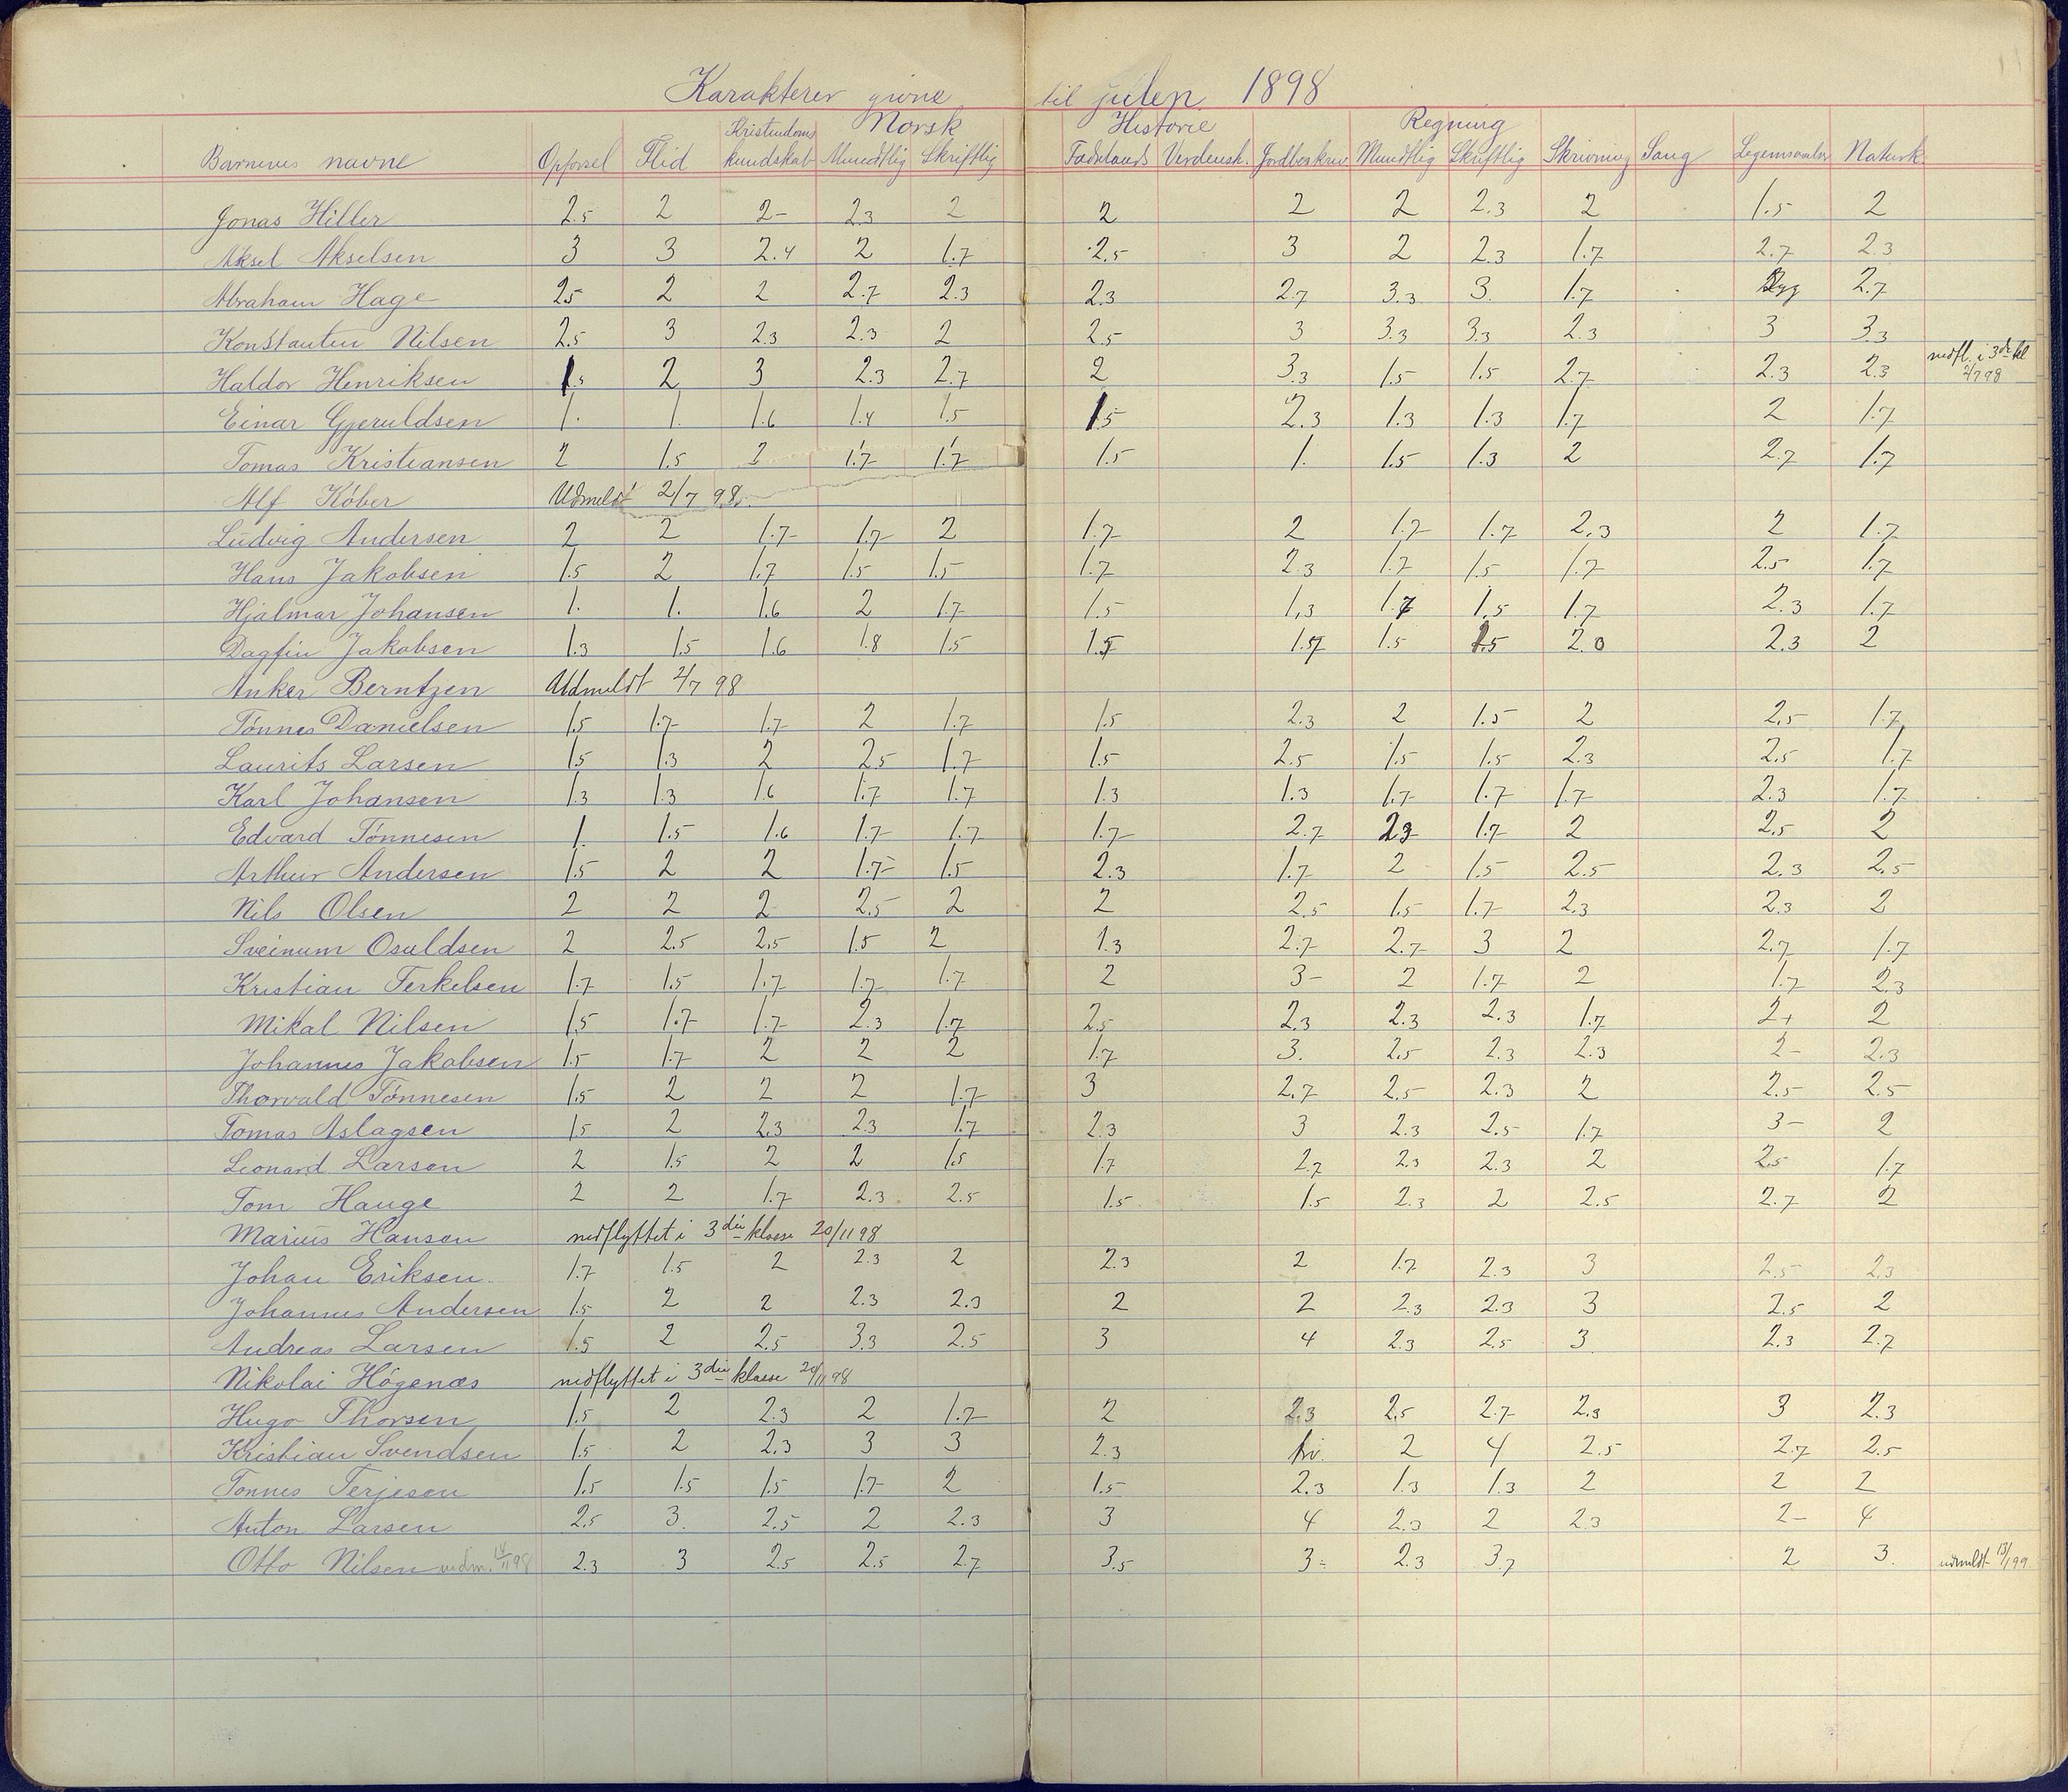 Karakterer givne til julen 1898
Kristendoms Norsk Historie Regning
Barnenes navne Opførsel Flid kundskab Mundtlig Skriftlig Fædrelands Verdensh. Jordbeskriv. Mundtlig Skriftlig Skrivning Sang Legemsøvelser Naturk.
Jonas Hiller 2.5 2 2- 2.3 2 2 2 2 2.3 2 1.5 2
Aksel Akselsen 3 3 2.4 2 1.7 2.5 3 2 2.3 1.7 2.7 2.3
Abraham Hage 2.5 2 2 2.7 2.3 2.3 2.7 3.3 3. 1.7 Syg 2.7
Konstantin Nilsen 2.5 3 2.3 2.3 2 2.5 3 3.3 3.3 2.3 3 3.3
Haldor Henriksen 1.5 2 3 2.3 2.7 2 3.3 1.5 1.5 2.7 2.3 2.3 nedfl. i 3de kl 2/7 98
Einar Gjeruldsen 1. 1. 1.6 1.4 1.5 1.5 2.3 1.3 1.3 1.7 2 1.7
Tomas Kristiansen 2 1.5 2 1.7 1.7 1.5 1. 1.5 1.3 2 2.7 1.7
Alf Køber Udmeldt 2/7 98.
Ludvig Andersen 2 2 1.7 1.7 2 1.7 2 1.7 1.7 2.3 2 1.7
Hans Jakobsen 1.5 2 1.7 1.5 1.5 1.7 2.3 1.7 1.5 1.7 2.5 1.7
Hjalmar Johansen 1. 1. 1.6 2 1.7 1.5 1.3 1.7 1.5 1.7 2.3 1.7
Dagfin Jakobsen 1.3 1.5 1.6 1.8 1.5 1.5 1.7 1.5 1.5 2.0 2.3 2
Anker Berntzen Udmeldt 2/7 98
Tønnes Danielsen 1.5 1.7 1.7 2 1.7 1.5 2.3 2 1.5 2 2.5 1.7
Laurits Larsen 1.5 1.3 2 2.5 1.7 1.5 2.5 1.5 1.5 2.3 2.5 1.7
Karl Johansen 1.3 1.3 1.6 1.7 1.7 1.3 1.3 1.7 1.7 1.7 2.3 1.7
Edvard Tønnesen 1. 1.5 1.6 1.7 1.7 1.7 2.7 2.3 1.7 2 2.5 2
Arthur Andersen 1.5 2 2 1.7 1.5 2.3 1.7 2 1.5 2.5 2.3 2.5
Nils Olsen 2 2 2 2.5 2 2 2.5 1.5 1.7 2.3 2.3 2
Sveinum Osuldsen 2 2.5 2.5 1.5 2 1.3 2.7 2.7 3 2 2.7 1.7
Kristian Terkelsen 1.7 1.5 1.7 1.7 1.7 2 3- 2 1.7 2 1.7 2.3
Mikal Nilsen 1.5 1.7 1.7 2.3 1.7 2.5 2.3 2.3 2.3 1.7 2+ 2
Johannes Jakobsen 1.5 1.7 2 2 2 1.7 3. 2.5 2.3 2.3 2- 2.3
Thorvald Tønnesen 1.5 2 2 2 1.7 3 2.7 2.5 2.3 2 2.5 2.5
Tomas Aslagsen 1.5 2 2.3 2.3 1.7 2.3 3 2.3 2.5 1.7 3- 2
Leonard Larsen 2 1.5 2 2 1.5 1.7 2.7 2.3 2.3 2 2.5 1.7
Tom Hauge 2 2 1.7 2.3 2.5 1.5 1.5 2.3 2 2.5 2.7 2
Marius Hansen nedflyttet i 3die klasse 20/11 98
Johan Eriksen. 1.7 1.5 2 2.3 2 2.3 2 1.7 2.3 3 2.5 2.3
Johannes Andersen 1.5 2 2 2.3 2.3 2 2 2.3 2.3 3 2.5 2
Andreas Larsen 1.5 2 2.5 3.3 2.5 3 4 2.3 2.5 3 2.3 2.7
Nikolai Høgenæs nedflyttet i 3die klasse 20/11 98
Hugo Thorsen 1.5 2 2.3 2 1.7 2 2.3 2.5 2.7 2.3 3 2.3
Kristian Svendsen 1.5 2 2.3 3 3 2.3 2 4 2.5 2.7 2.5
Tønnes Terjesen 1.5 1.5 1.5 1.7 2 1.5 2.3 1.3 1.3 2 2 2
Anton Larsen 2.5 3. 2.5 2 2.3 3 4 2.3 2 2.3 2- 4
Otto Nilsen indm. 14/11 98 2.3 3 2.5 2.5 2.7 3.5 3- 2.3 3.7 2 3. udmeldt 13/1 99